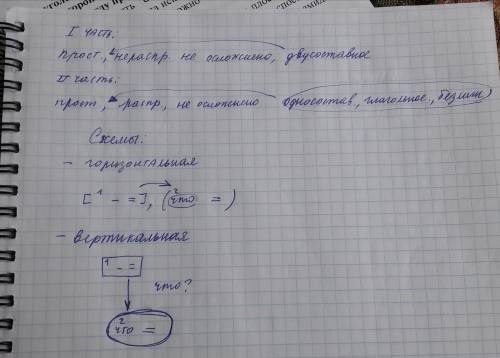 I часть:
прост, нераспр. не осложнено, двусоставное
II часть:
прост, распр, не осложнено односостав, глагольное, безличн
Схемы:
- горизонтальная
[¹ - =], (²что =)
- вертикальная
1 - =
что?
2 что =